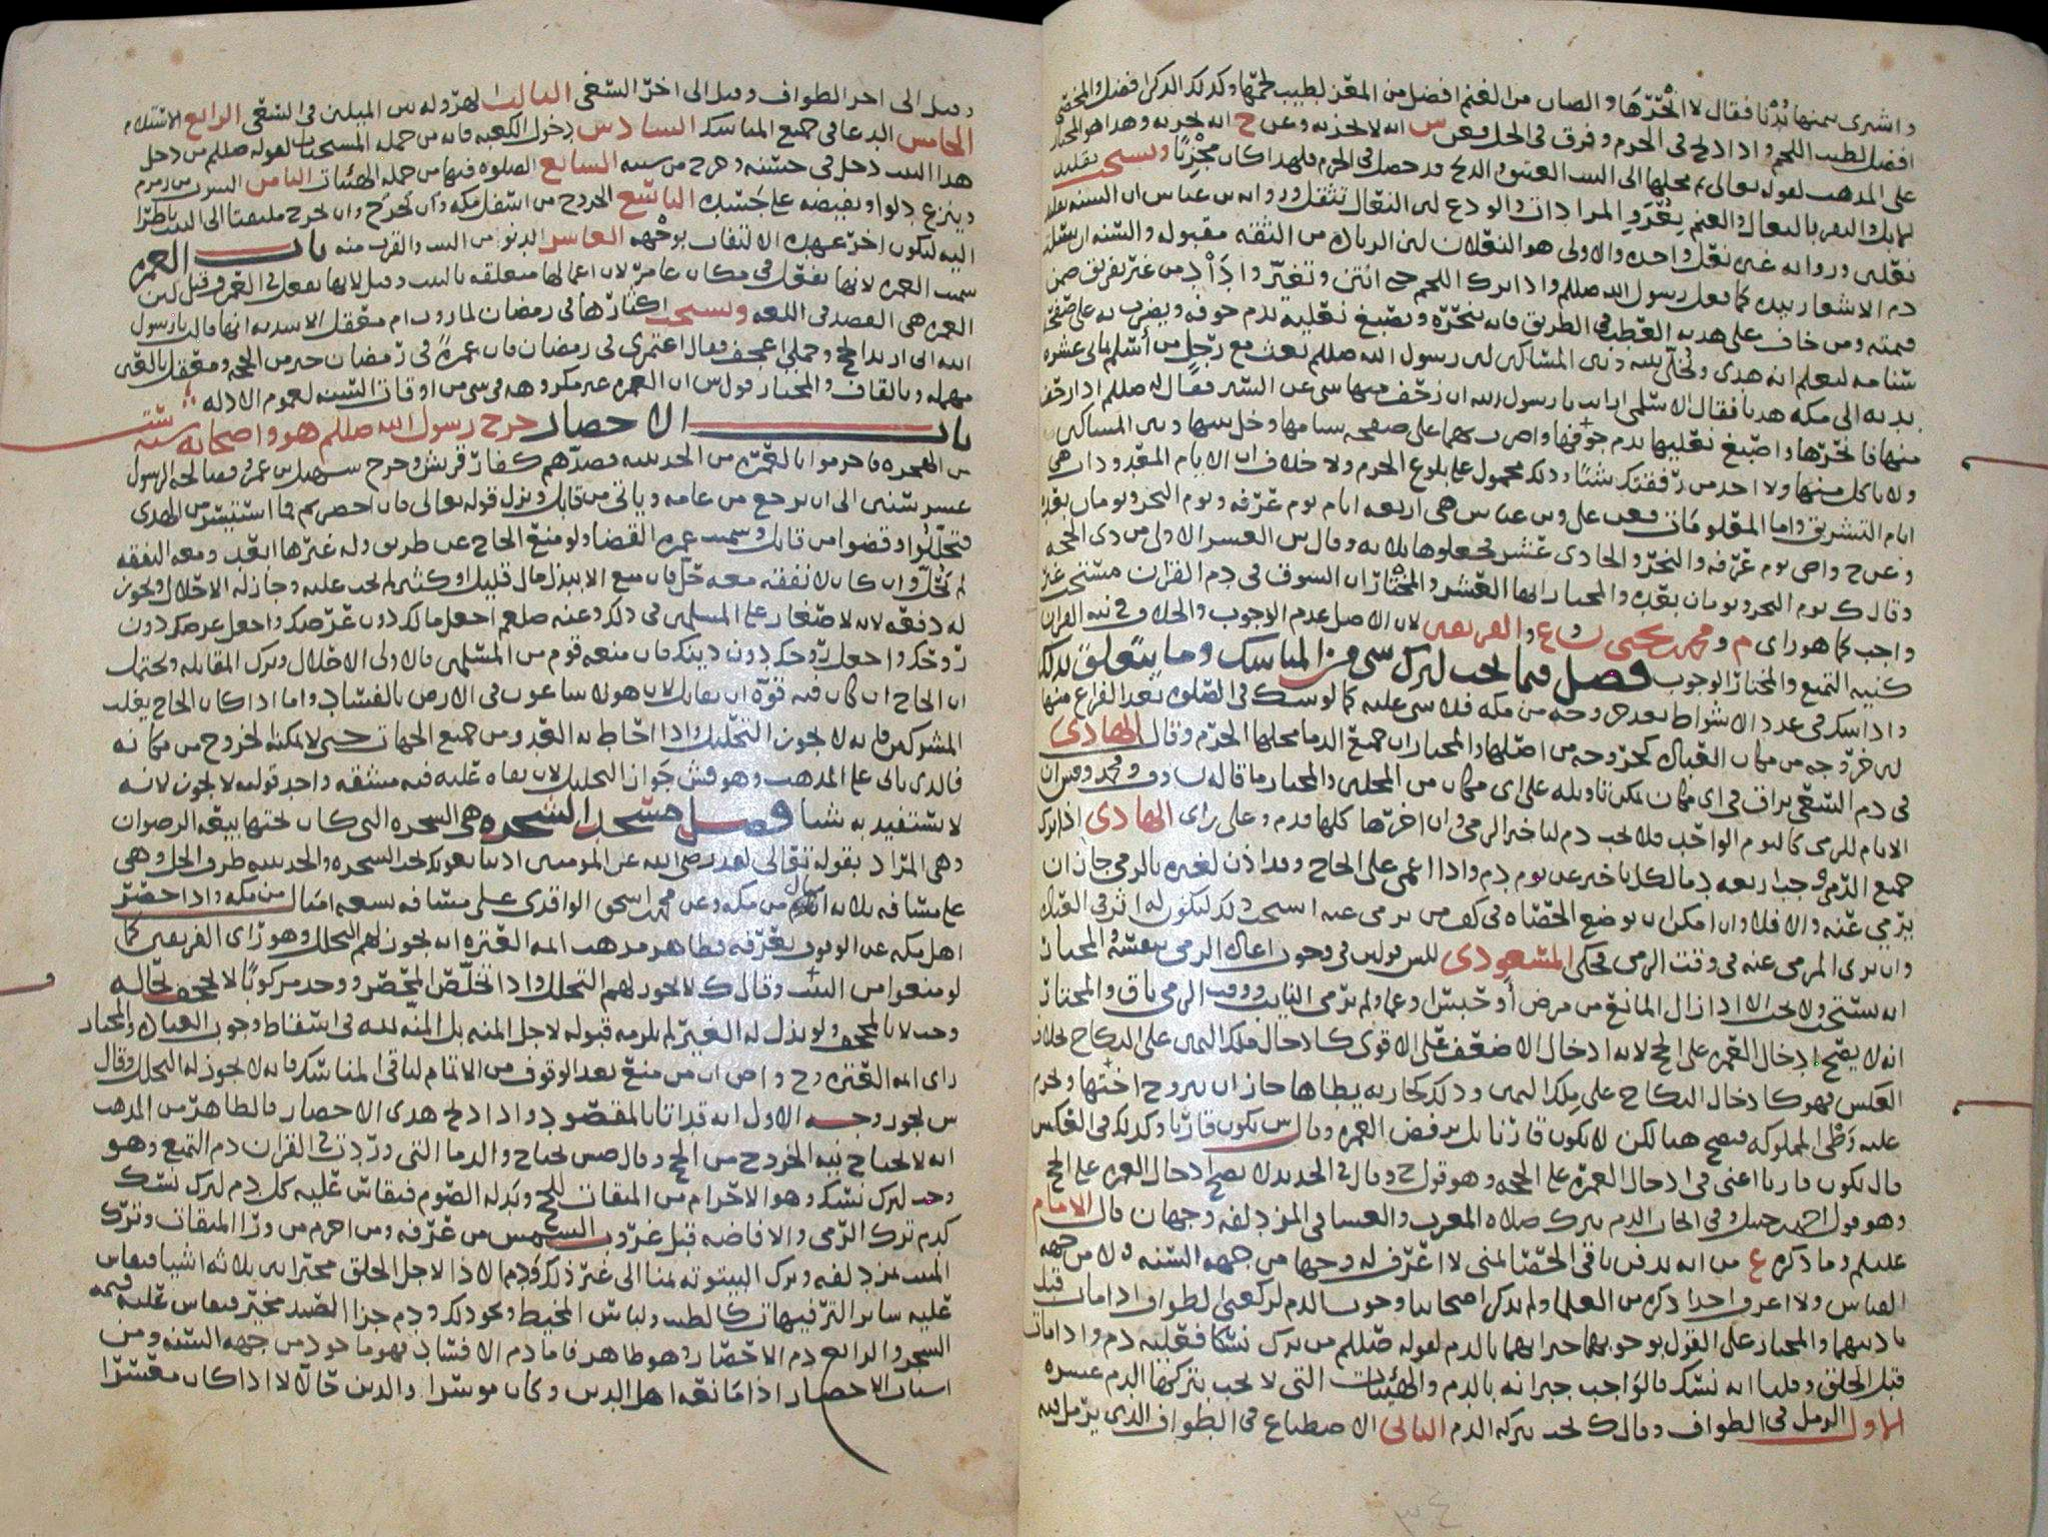 واشترى بثمنها بدنا فقال لا انحرها والضان من الغنم افضل من المعز لطيب لحمها وكذلك الذكر افضل
افضل لطيب اللحم واذا ذبح في الحرم وفرق في الحل فعن س انه لا يجزيه وعن ح انه يجزيه وهذا هو المختار
على المذهب لقوله تعالى ثم محلها الى البيت العتيق والذبح قد حصل في الحرم فلهذا كان مجزيا ويستحب تقليد
دم الاشعار بيده كما فعل رسول الله صللم واذا ترك اللحم حتى انتن وتغير
قيمته ومن خاف على هديه العطب في الطريق فانه ينحره ويصبغ نعليه بدم جوفه ويضرب به على صفحة
سنامه ليعلم انه هدي ويخلي بينه وبين المساكين لان رسول الله صللم بعث مع رجل من أسلم ثماني عشرة
بدنه الى مكه هديا فقال الاسلمي ارايت يا رسول الله ان زحف منها شي عن السير فقال له صللم اذا زحف
منها فانحرها واصبغ نعليها بدم جوفها واضرب بهما على صفحه سنامها وخل بينها وبين المساكين
ولا تاكل منها ولا احد من رفقتك شيئا وذلك محمول على بلوغ الحرم ولا خلاف ان الايام المعدودات هي
ايام التشريق واما المعلومات فعن علي وبن عباس هي اربعه ايام يوم عرفه ويوم النحر ويومان بعده
وعن ح واص يوم عرفه والنحر والحادي عشر فجعلوها ثلاثه وقال ش العشر الاولى من ذي الحجه
وقال ك يوم النحر ويومان بعده والمختار انها العشر والمختار ان السوق في دم القران مستحب غير
واجب كما هو راي م و محمد بن يحيى و ع والفريقين لان الاصل عدم الوجوب والخلاف في نيه القران
كنيه التمتع والمختار الوجوب فصل فيما يجب لترك شي من المناسك وما يتعلق بذلك
واذا شك في عدد الاشواط بعد خروجه من مكه فلا شي عليه كما لو شك في الصلوه بعد الفراغ منها
لان خروجه من مكان القتال كخروجه من اصلها والمختار ان جميع الدما محلها الحرم وقال الهادي
في دم السعي يراق في اي مكان يمكن تاويله على اي مكان من المحلين والمختار ما قاله
الايام للرمي كاليوم الواحد فلا يجب دم لتاخير الرمي وان اخرها كلها فدم وعلى راي الهادي اذا ترك
جميع الرمي وجب اربعه دما لكل تاخير عن يوم دم واذا اغمي على الحاج وقد اذن لغيره بالرمي جاز ان
يرمي عنه والا فلا وان امكن ان يوضع الحصاه في كف من يرمي عنه استحب ذلك ليكون له اثر في القتال
وان يرى المرمي عنه في وقت الرمي فحكى المسعودي
انه يستحب ولا يجب الا اذا زال المانع من مرض أو حبس
انه لا يصح ادخال العمره على الحج لانه ادخال الاضعف على الاقوى كادخال ملك اليمين على النكاح بخلاف
العكس فهو كادخال النكاح على ملك اليمين وذلك كجاريه يطاها جاز ان يتزوج اختها ويحرم
عليه وطئ المملوكه فيصح هنا لكن لا يكون قارنا بل يرفض العمره وقال س يكون قارنا وكذلك في العكس
قال يكون قارنا اعني في ادخال العمره على الحجه وهو قول ح وقال في الجديد لا يصح ادخال العمره على الحج
وهو قول احمد بن حنبل وفي ايجاب الدم بترك صلاه المغرب والعشا في المزدلفه وجهان قال الامام
عليلم وما ذكره ع من انه يدفن باقي الحصا بمنى لا اعرف له وجها من جهه السنه ولا من جهه
القياس ولا اعرف احدا ذكره من العلما ولم يذكر اصحابنا وجوب الدم لركعتي الطواف اذا مات قبل
تاديتهما والمختار على القول بوجوبهما جبرانهما بالدم لقوله صللم من ترك نسكا فعليه دم واذا مات
قبل الحلق وقلنا انه نسك فالواجب جبرانه بالدم والهيئات التي لا يجب بتركها الدم عشره
الاول الرمل في الطواف وقال ك يجب بتركه الدم الثاني الاضطباع في الطواف الذي يرمل فيه
وقيل الى اخر الطواف وقيل الى اخر السعي الثالث الهروله بين الميلين في السعي الرابع الاستلام
الخامس الدعا في جميع المناسك السادس دخول الكعبه فانه من جمله المستحبات لقوله صللم من دخل
هذا البيت دخل في حسنه وخرج من سيئه السابع الصلوه فيها من جمله الهيئات الثامن الشرب من زمزم
وينزع دلوا ويفيضه على جسده التاسع الخروج من اسفل مكه وأن يخرج ملتفتا الى البيت ناظرا
اليه ليكون اخر عهده الالتفات بوجهه العاشر الدنو من البيت والقرب منه باب العمره
سميت العمره لانها تفعل في مكان عامر لان اعمالها متعلقه بالبيت وقيل لانها تفعل في العمر وقيل لان
العمره هي القصد في اللغه ويستحب اكثارها في رمضان لما روت ام معقل الاسديه انها قالت يا رسول
الله اني اريد الحج وجملي اعجف فقال اعتمري في رمضان فان عمرة في رمضان خير من الحجه ومعقل بالعين
مهمله وبالقاف والمختار قول س ان العمره غير مكروهه في شي من اوقات السنه لعموم الادله
باب الاحصار خرج رسول الله صللم هو واصحابه سنه ست
من الهجره فاحرموا بالعمره من الحديبيه فصدهم كفار قريش وخرج سهيل بن عمرو فصالحه الرسول
عشر سنين الى ان يرجع من عامه وياتي من قابل ونزل قوله تعالى فان احصرتم فما استيسر من الهدي
فتحللوا وقضوا من قابل وسميت عمره القضا ولو منع الحاج عن طريق وله غيرها ابعد ومعه النفقه
لم يتحلل وان كان لا نفقه معه حل فان منع الا ببذل مال قليل او كثير لم يجب عليه وجاز له الاحلال ويجوز
له دفعه لانه لا صغار على المسلمين في ذلك وعنه صلعم اجعل مالك دون عرضك واجعل عرضك دون
روحك واجعل روحك دون دينك فان منعه قوم من المسلمين فالاولى الاحلال وترك المقاتله ويحتمل
ان الحاج ان كان فيه قوة ان يقاتل لان هولا ساعون في الارض بالفساد واما اذا كان الحاج يغلب
المشركين فانه لا يجوز التحلل واذا احاط به العدو من جميع الجهات حتى لا يمكنه الخروج من مكانه
فالذي ياتي على المذهب وهو قش جواز التحليل لان بقاه عليه فيه مشقه واحد قوليه لا يجوز لانه
لا يستفيد به شيا فصل مسجد الشجره هي الشجره التي كان تحتها بيعه الرضوان
وهي المراد بقوله تعالى لقد رضي الله عن المومنين اذ يبايعونك تحت الشجره والحديبيه طرف الحل وهي
على مسافه ثلاثه اميال من مكه وعن محمد بن اسحق الواقدي على مسافه تسعه اميال من مكه واذا احصر
اهل مكه عن الوقوف بعرفه فظاهر مذهب ايمه العتره انه يجوز لهم التحلل وهو راي الفريقين كما
لو منعوا من البيت وقال ك لا يجوز لهم التحلل واذا تخلص المحصر ووجد مركوبا لا يجحف بحاله
وجب لا بالمجحف ولو بذل له الغير لم يلزمه قبوله لاجل المنه بل المنه لله في اسقاط وجوب القتال والمختار
راي ايمه العتره وح واص ان من منع بعد الوقوف من الاتمام لباقي المناسك فانه لا يجوز له التحلل وقال
س يجوز وجه الاول انه قد اتا بالمقصود واذا ذبح هدي الاحصار فالظاهر من المذهب
انه لا يحتاج نيه الخروج من الحج وقال صش يحتاج والدما التي وردت في القران دم التمتع وهو
وجب لترك نسك وهو الاحرام من الميقات للحج وبدله الصوم فيقاس عليه كل دم لترك نسك
كدم ترك الرمي والافاضه قبل غروب الشمس من عرفه ومن احرم من ورا الميقات وترك
المبيت بمزدلفه وترك البيتوته بمنا الى غير ذلك ودم الاذا لاجل الحلق مخير بين ثلاثه اشيا فيقاس
عليه ساير الترفيهات كالطيب ولباس المخيط ونحو ذلك ودم جزا الصيد مخير فيقاس عليه قيمه
الشجر والرابع دم الاحصار وهو ظاهر فاما دم الافساد فهو ماخوذ من جهه السنه ومن
اسباب الاحصار اذا مانعه اهل الدين وكان موسرا والدين حالا لا اذا كان معسرا